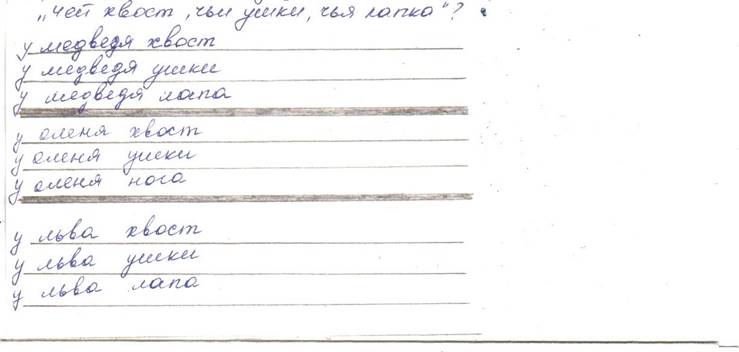 „Чей хвост, чьи ушки, чья лапка"?
у медведя хвост
у медведя ушки
у медведя лапа
у оленя хвост
у оленя ушки
у оленя нога
у льва хвост
у льва ушки
у льва лапа